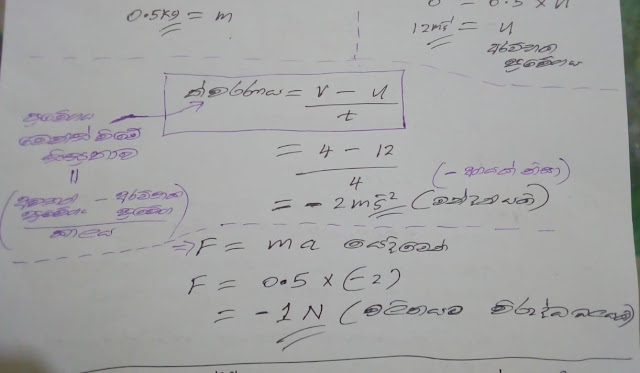 0.5kg = m
6 = 0.5 × u
12ms⁻¹ = u
ආරම්භක
ප්‍රවේගය
ත්වරණය = v - u / t
ප්‍රවේගය
වෙනස් වීමේ
සීඝ්‍රතාව
=
අවසාන ප්‍රවේගය - ආරම්භක ප්‍රවේගය / කාලය
= 4 - 12 / 4
(- අගයක් නිසා)
= - 2ms⁻² (මන්දනයකි)
⇒ F = ma යෙදීමෙන්
F = 0.5 × (-2)
= -1 N (චලිතයට විරුද්ධ බලයකි)